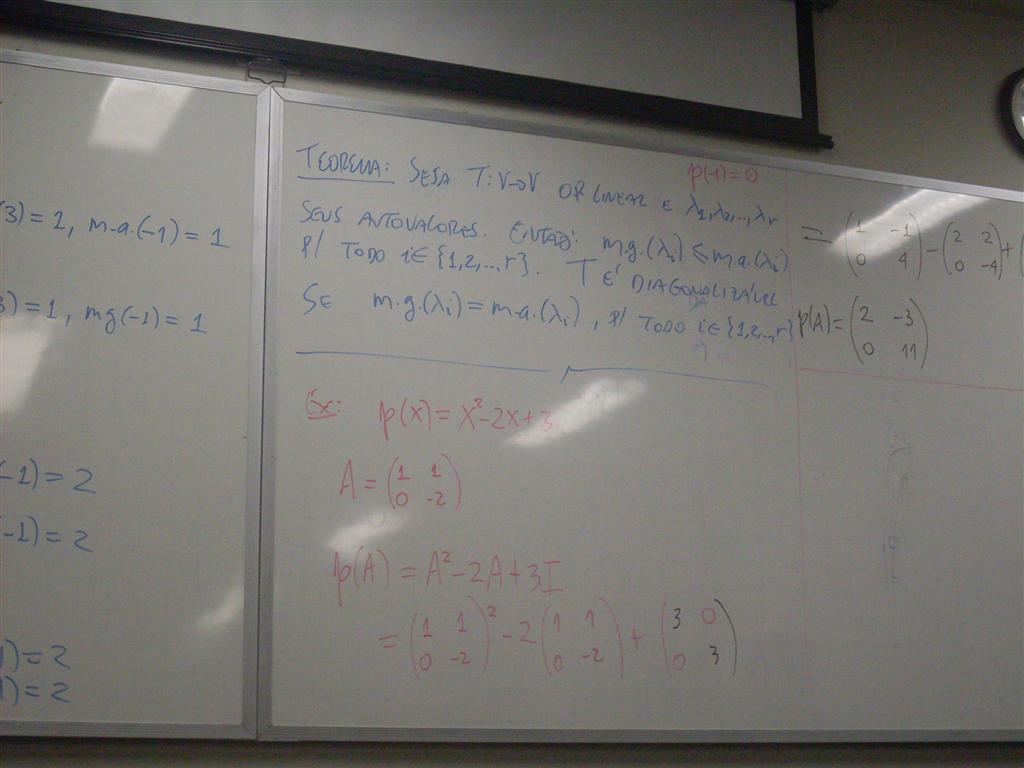 3) = 1, m.a.(-1) = 1
3) = 1, mg(-1) = 1
(-1) = 2
(-1) = 2
1) = 2
1) = 2
TEOREMA: SEJA T: V→V OP LINEAR E λ1, λ2, ..., λr
SEUS AUTOVALORES. ENTÃO: m.g.(λi) ≤ m.a.(λi)
P/ TODO i∈{1,2,...,r}. T É DIAGONALIZÁVEL
SE m.g.(λi) = m.a.(λi), P/ TODO i∈{1,2,...,r}
p(-1) = 0
Ex: p(x) = x² - 2x + 3
A = (1 1
0 -2)
p(A) = A² - 2A + 3I
= (1 1
0 -2)² - 2(1 1
0 -2) + (3 0
0 3)
= (1 -1
0 4) - (2 2
0 -4) + (
p(A) = (2 -3
0 11)